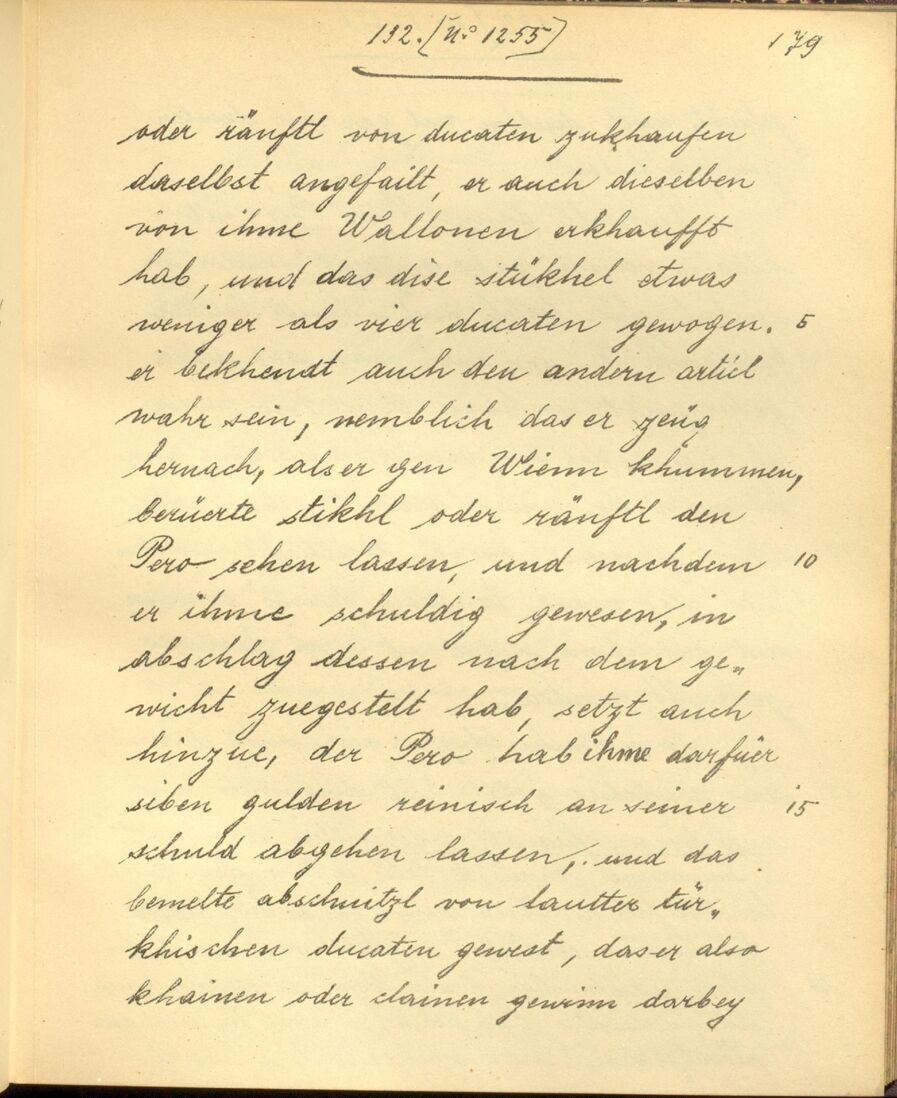 192. (No 1255) 179
oder ränftl von ducaten zukhaufen
daselbst angefailt, er auch dieselben
von ihme Wallonen erkhaufft
hab, und das dise stükhel etwas
weniger als vier ducaten gewogen. 5
er bekhendt auch den andern articl
wahr sein, nemblich das er zeüg
hernach, als er gen Wienn khummen,
berüerte stikhl oder ränftl den
Pero sehen lassen, und nachdem 10
er ihme schuldig gewesen, in
abschlag dessen nach dem ge„
wicht zuegestelt hab, setzt auch
hinzue, der Pero hab ihme darfüer
siben gulden reinisch an seiner 15
schuld abgehen lassen, und das
bemelte abschnitzl von lautter tür„
khischen ducaten gewest, das er also
khainen oder clainen gewinn darbey